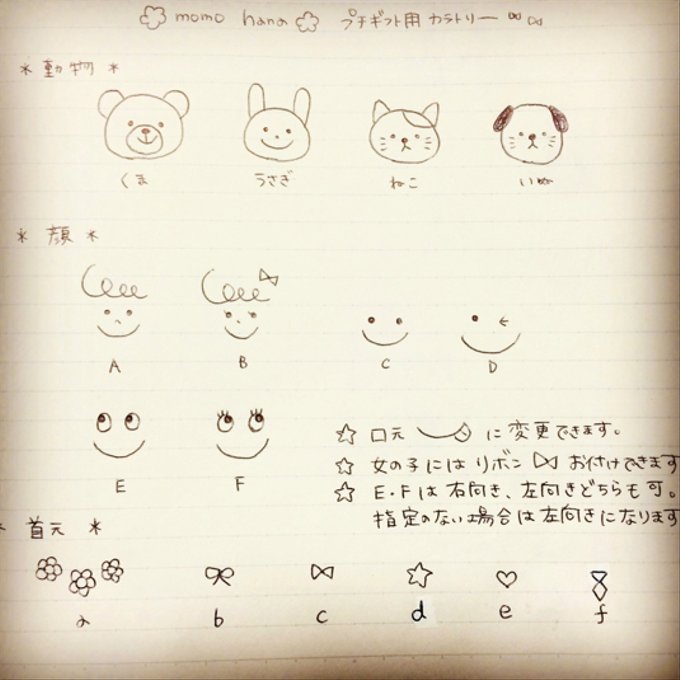 momo hana プチギフト用 カラトリー
* 動物 *
くま うさぎ ねこ いぬ
* 顔 *
A B C D
E F
☆ 口元 に変更できます。
☆ 女の子には リボン お付けできます
☆ E・Fは右向き、左向きどちらも可。
指定のない場合は左向きになります
* 首元 *
a b c d e f